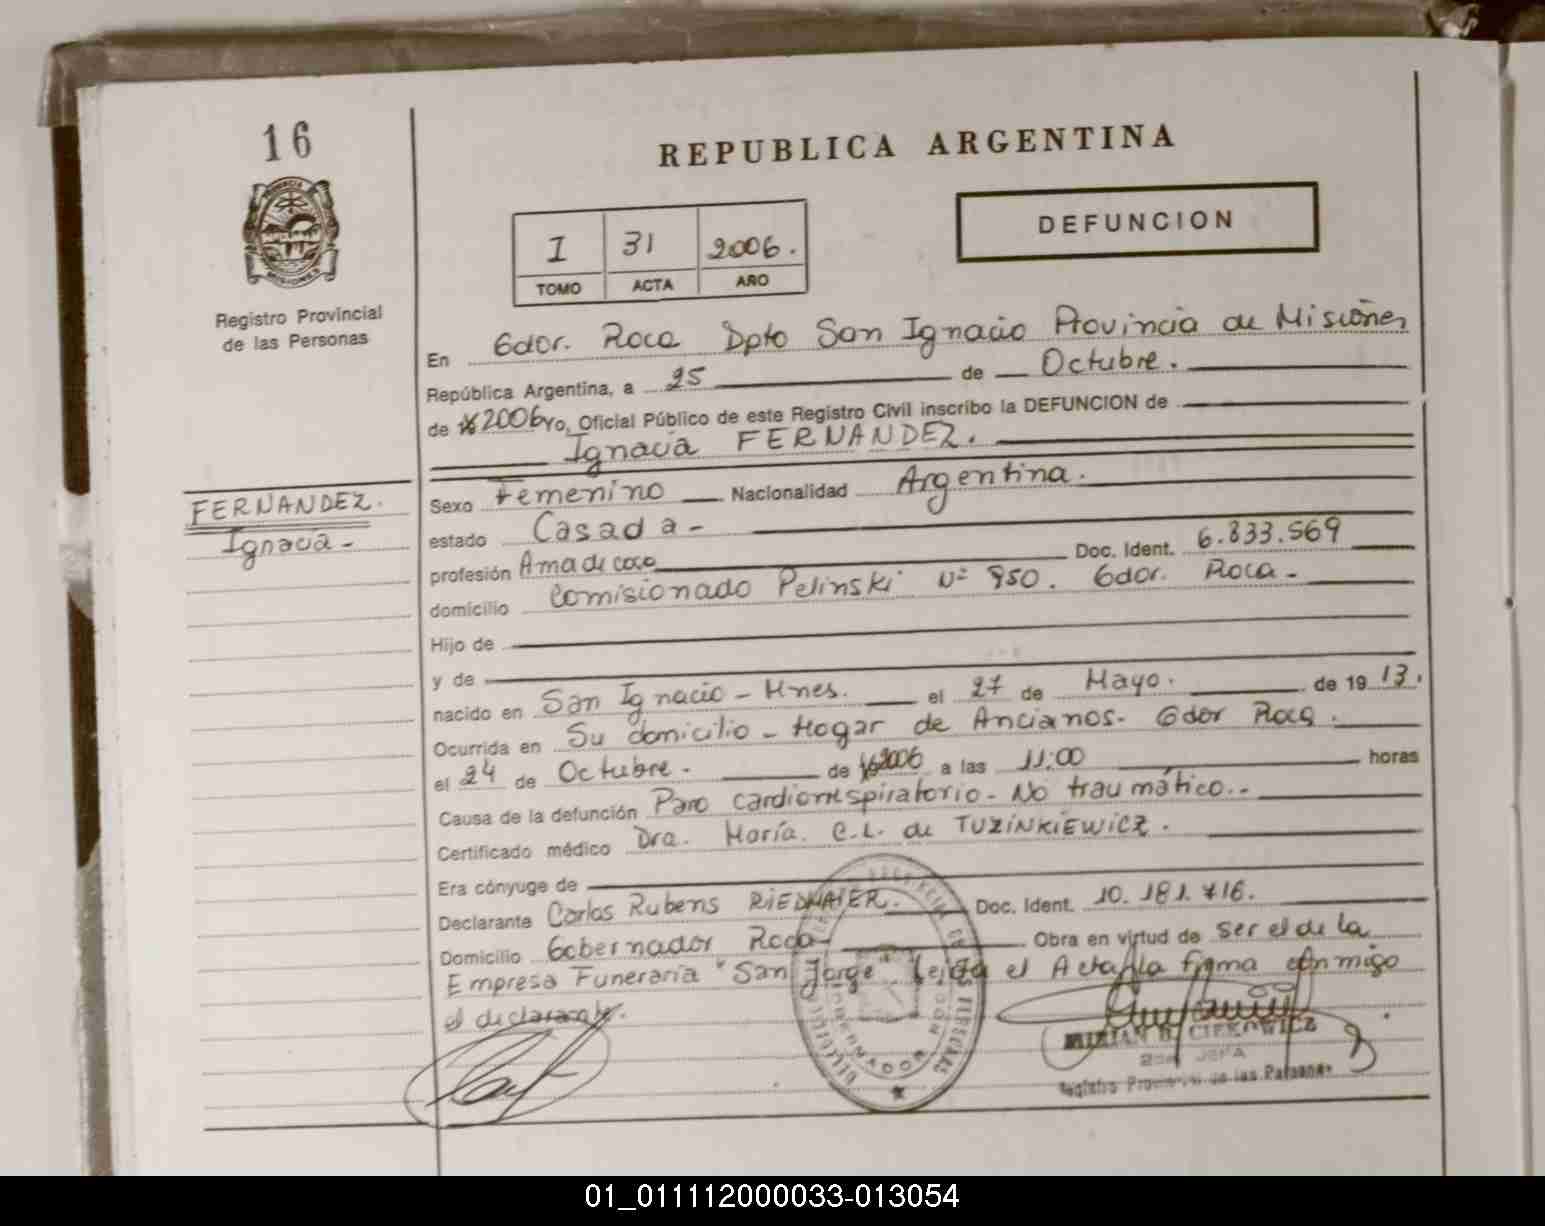 16
REPUBLICA ARGENTINA
DEFUNCION
I 31 2006.
TOMO ACTA AÑO
Registro Provincial
de las Personas
En Gdor. Roca Dpto San Ignacio Provincia de Misiones
República Argentina, a 25 de Octubre.
de 2006 yo, Oficial Público de este Registro Civil inscribo la DEFUNCION de
Ignacia FERNANDEZ.
FERNANDEZ.
Ignacia -
Sexo Femenino Nacionalidad Argentina.
estado Casada -
profesión Ama de casa Doc. Ident. 6.833.569
domicilio Comisionado Pelinski Nº 950. Gdor. Roca -
Hijo de
y de
nacido en San Ignacio - Mnes. el 27 de Mayo. de 19 13.
Ocurrida en Su domicilio - Hogar de Ancianos - Gdor Roca.
el 24 de Octubre. de 2006 a las 11:00 horas
Causa de la defunción Paro cardiorrespiratorio - No traumático..
Certificado médico Dra. María. C.L. de TUZINKIEWICZ.
Era cónyuge de
Declarante Carlos Rubens RIEDMAIER. Doc. Ident. 10.181.716.
Domicilio Gobernador Roca Obra en virtud de ser el de la
Empresa Funeraria "San Jorge" Leída el Acta, la firma conmigo
el declarante.
MIRIAN B. CIEKOWICZ
2do JEFA
Registro Provincial de las Personas
01_011112000033-013054